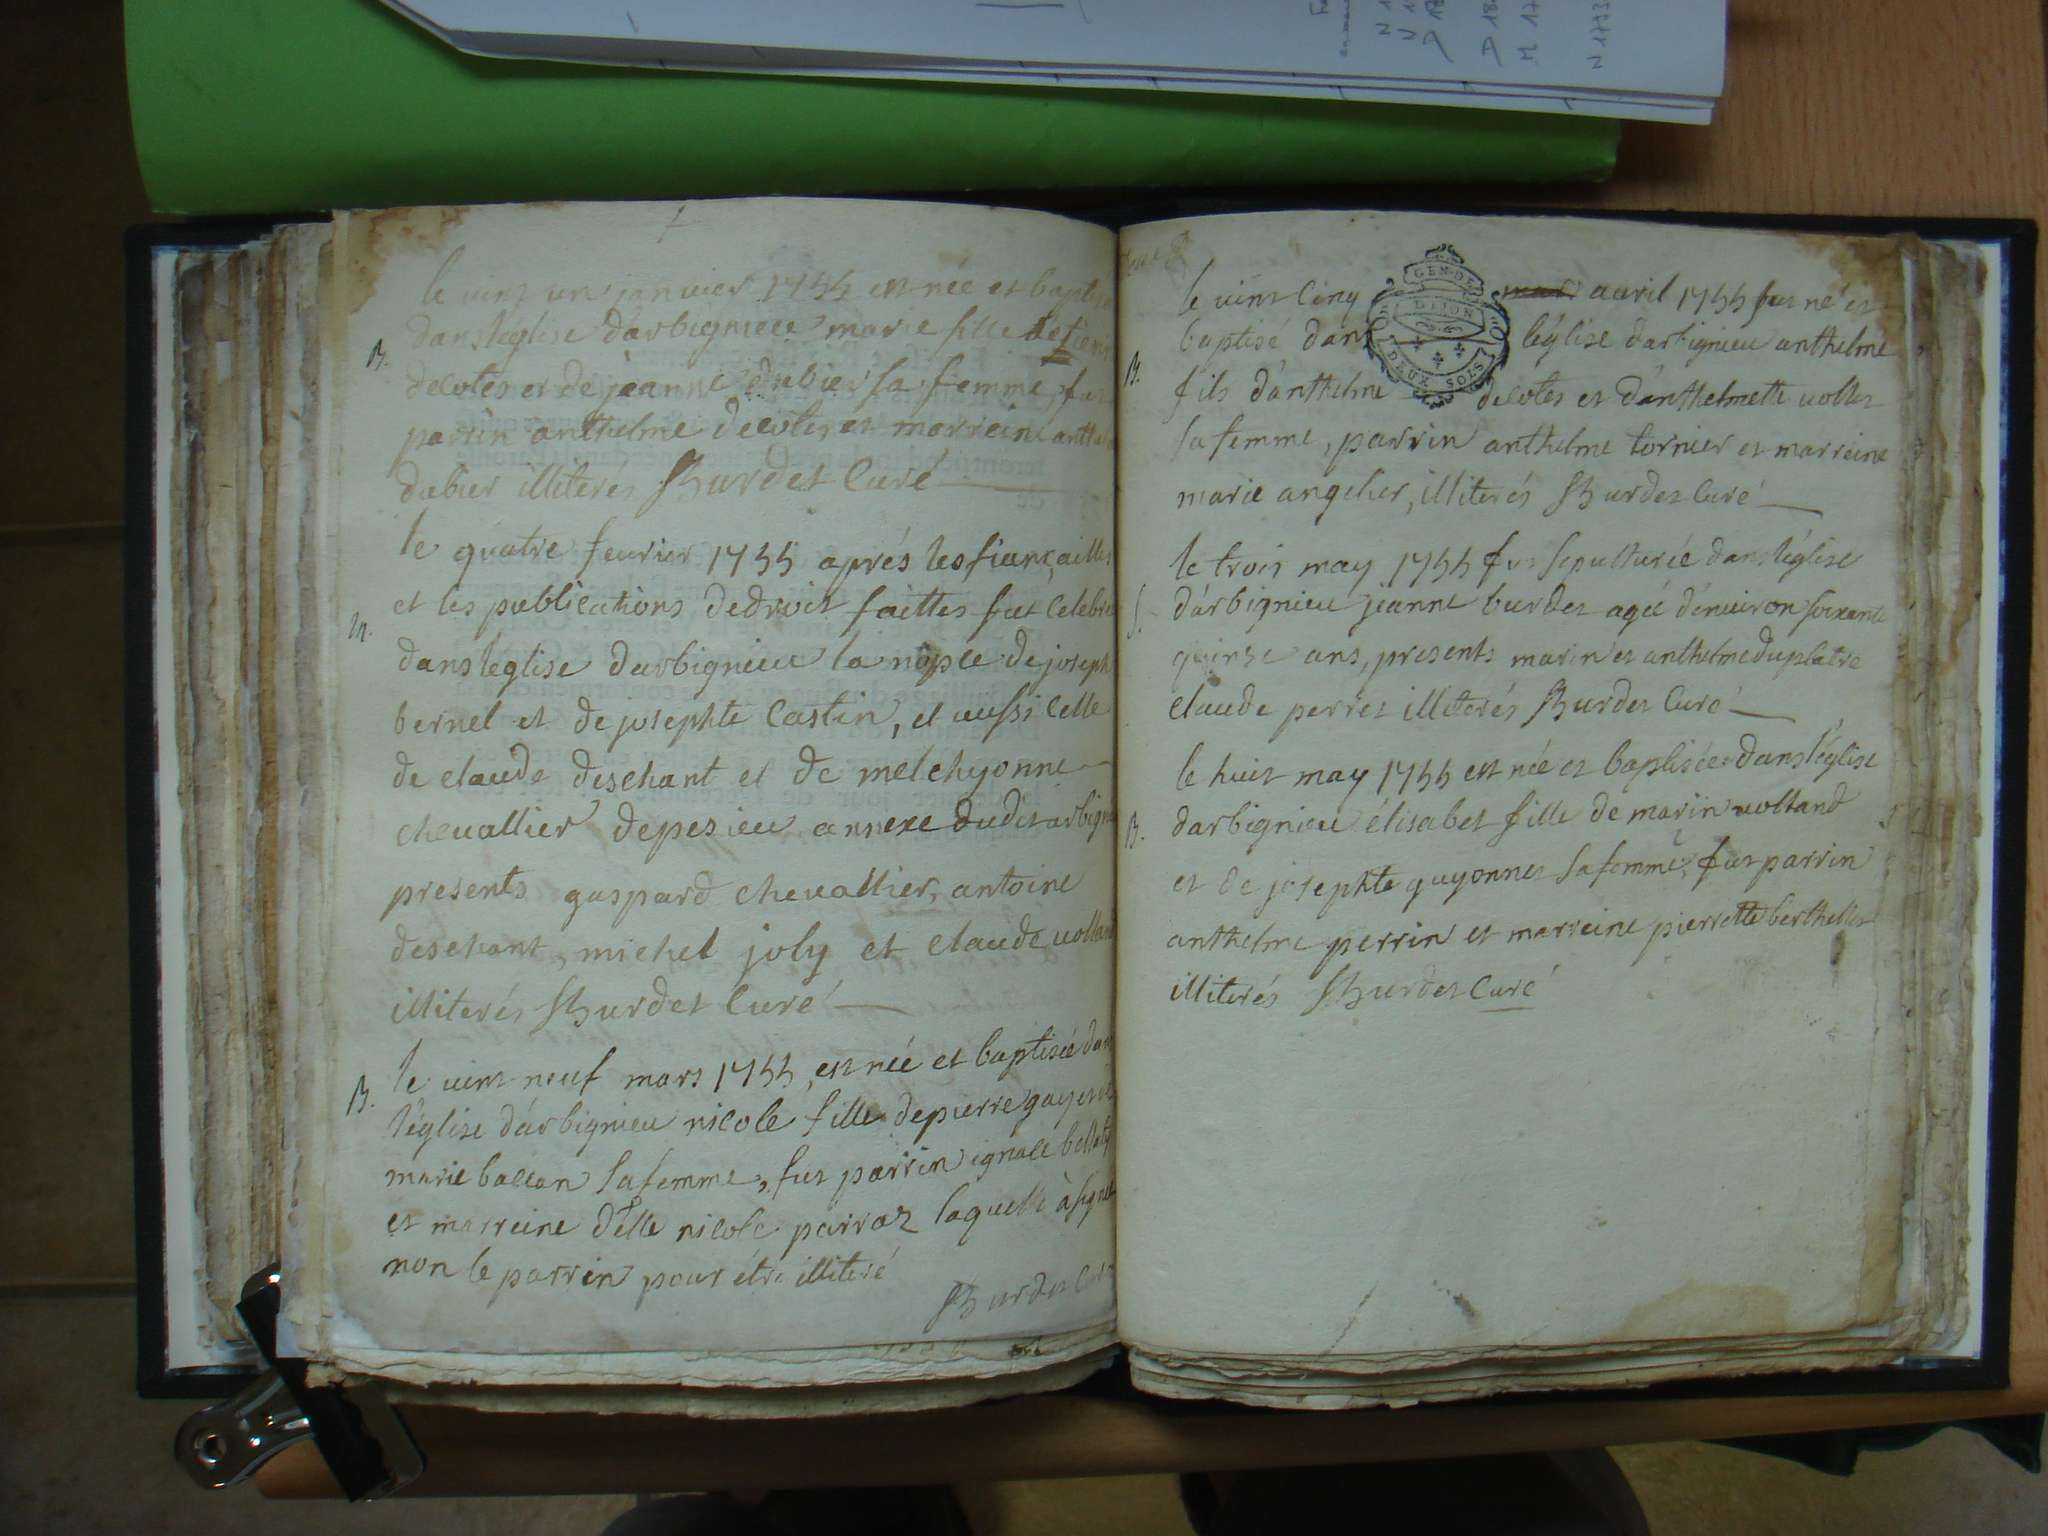 le vint un janvier 1755 est née et baptisée
dans léglise darbignieu marie fille
B.
decotes et de jeanne dubier sa femme, fut
parrin anthelme decotes et marreine
dubier illiterés Burdet Curé
le quatre feurier 1755 aprés les fiançailles
et les publications de droit faittes fut Celebré
M.
dans léglise darbignieu la nopce de joseph
bernel et de josephte Castin, et aussi Celle
de claude deschant et de melchyonne
chevallier depesieu annexe dudit arbignieu
presents gaspard chevallier, antoine
deschant, michel joly et claude volland
illiterés Burdet Curé
B. le vint neuf mars 1755, est née et baptisée dans
léglise d'arbignieu nicole fille de pierre gay et de
marie ballan sa femme, fut parrin ignace
et marreine delle nicole parraz laquelle à signé
non le parrin pour étre illiteré
Burdet Curé
le vint Cinq mars avril 1755 fut né et
baptisé dans léglise darbignieu anthelme
B.
fils d'anthelme decotes et d'anthelmette vollet
sa femme, parrin anthelme tornier et marreine
marie angelier, illiterés Burdet Curé
le trois may 1755 fut sepulturée dans léglise
S. d'arbignieu jeanne burdet agée d'enuiron soixante
quinze ans, presents marin et anthelme duplatre
claude perret illiterés Burdet Curé
le huit may 1755 est née et baptisée dans léglise
B. darbignieu élisabet fille de marin volland
et de josephte guyonnet sa femme, fut parrin
anthelme perrin et marreine pierrette berthellet
illiterés Burdet Curé
GEN. DE
DIJON
DEUX SOLS